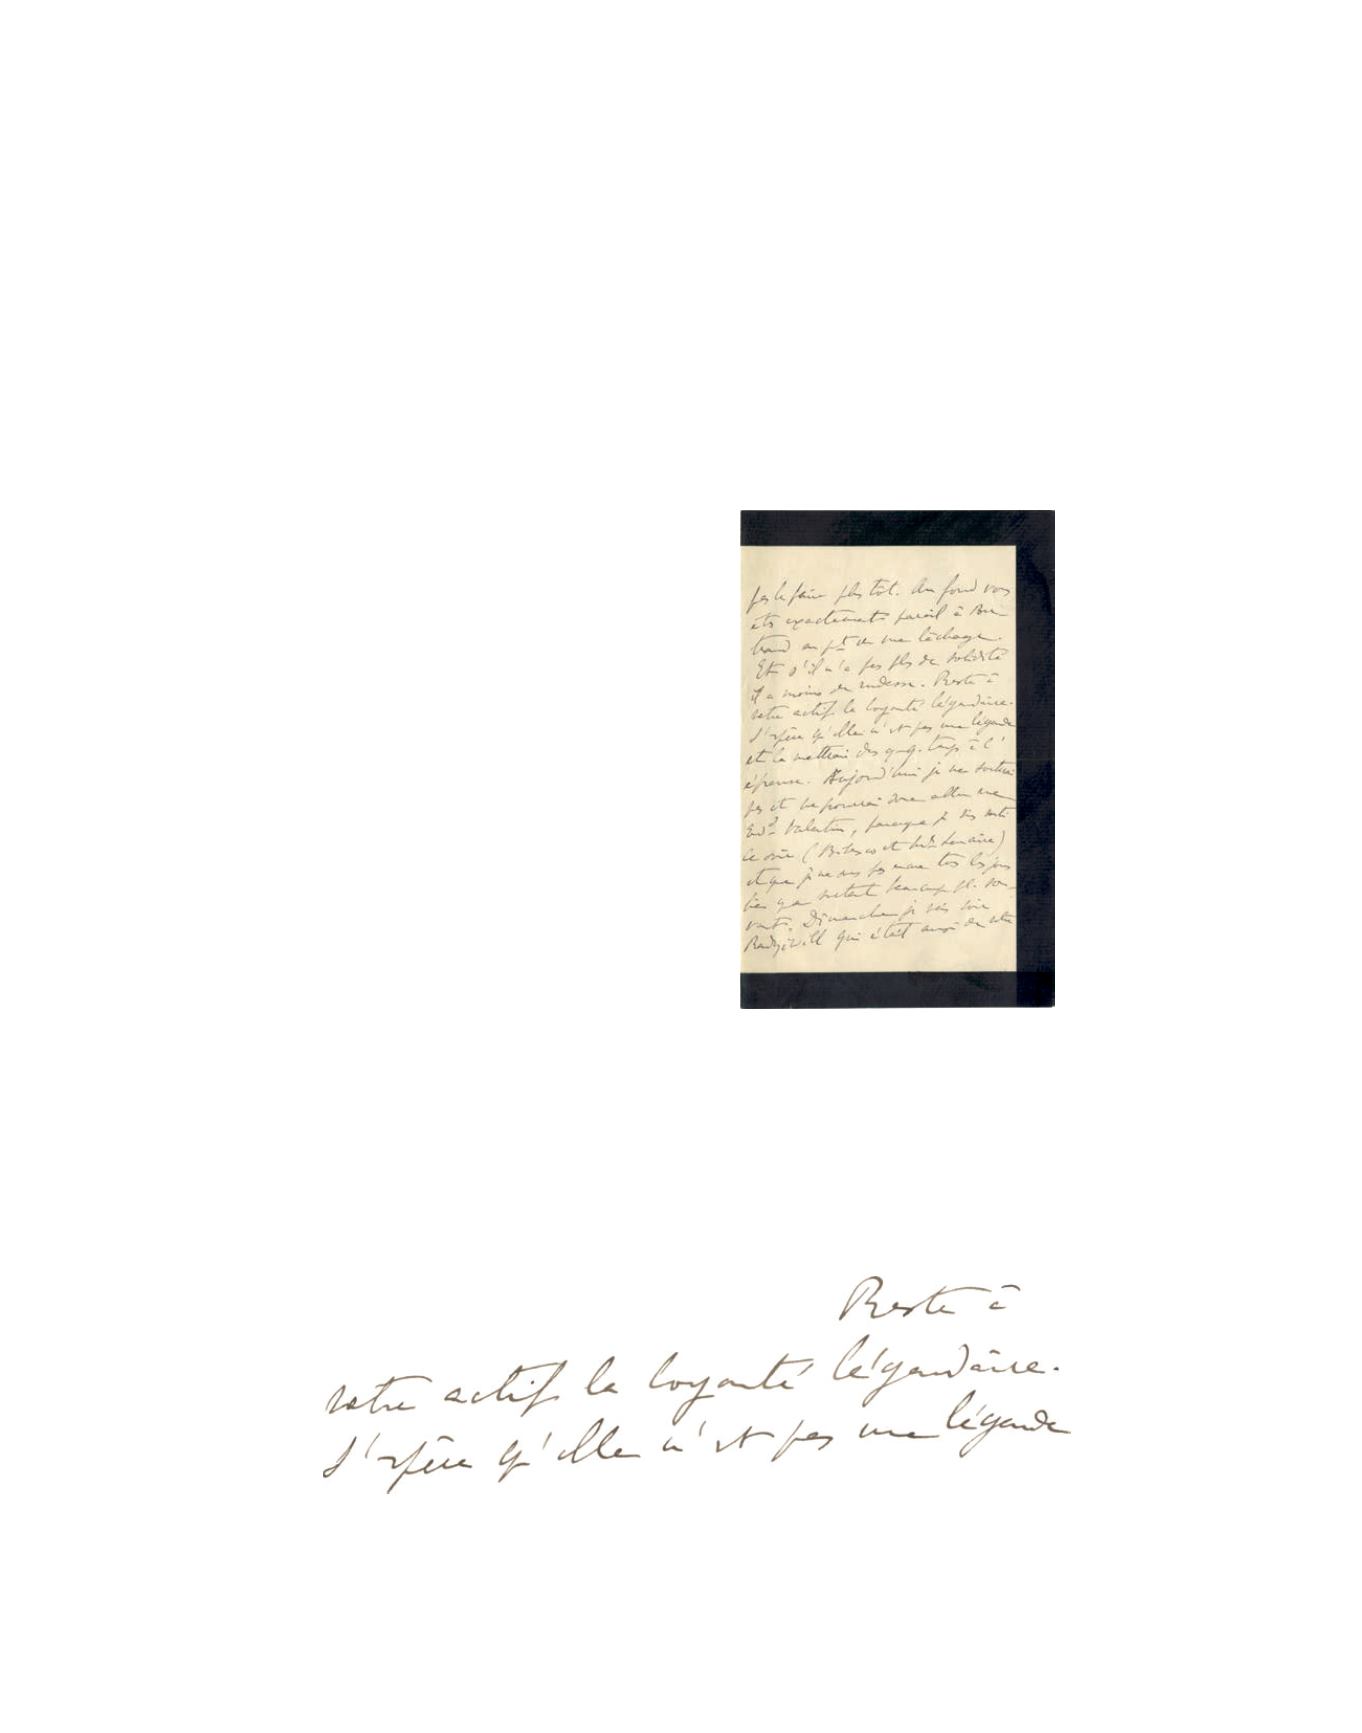 pas le faire plus tôt. Au fond vous
êtes exactement pareil à Ber
trand au pt de vue lâchage.
Et s'il n'a pas plus de solidité
il a moins de rudesse. Reste à
votre actif la loyauté légendaire.
J'espère qu'elle n'est pas une légende
et la mettrai dès q.q. temps à l'
épreuve. Aujourd'hui je ne sortirai
pas et ne pourrai donc aller rue
Valentin, parce que je suis sorti
ce soir (Bibesco et
et que je ne sors pas encore tous les jours
bien que sortant beaucoup pl. sou-
vent. Dimanche je vais voir
Radziwill qui était
Reste à
votre actif la loyauté légendaire.
J'espère qu'elle n'est pas une légende